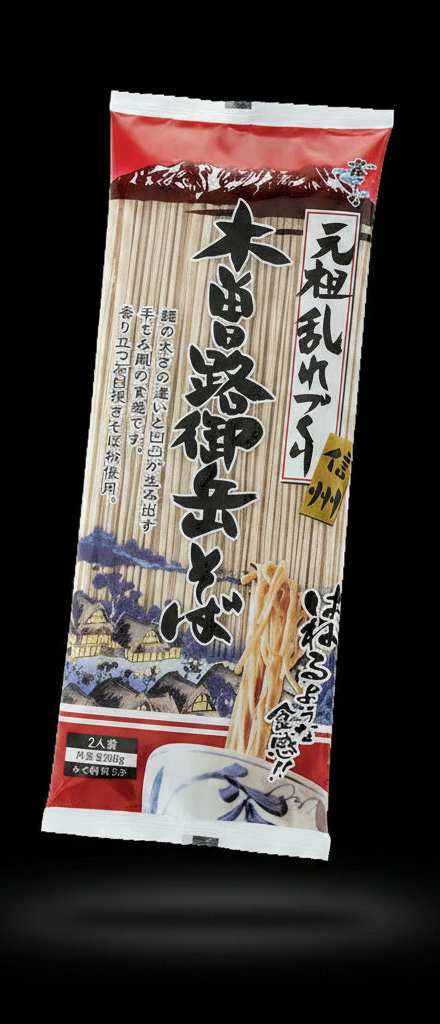 元祖乱れづくり
信州
木曽路御岳そば
麺の太さの違いと凹凸が生み出す
手もみ風の食感です。
香り立つ石臼挽きそば粉使用。
はねるような
食感!!
2人前